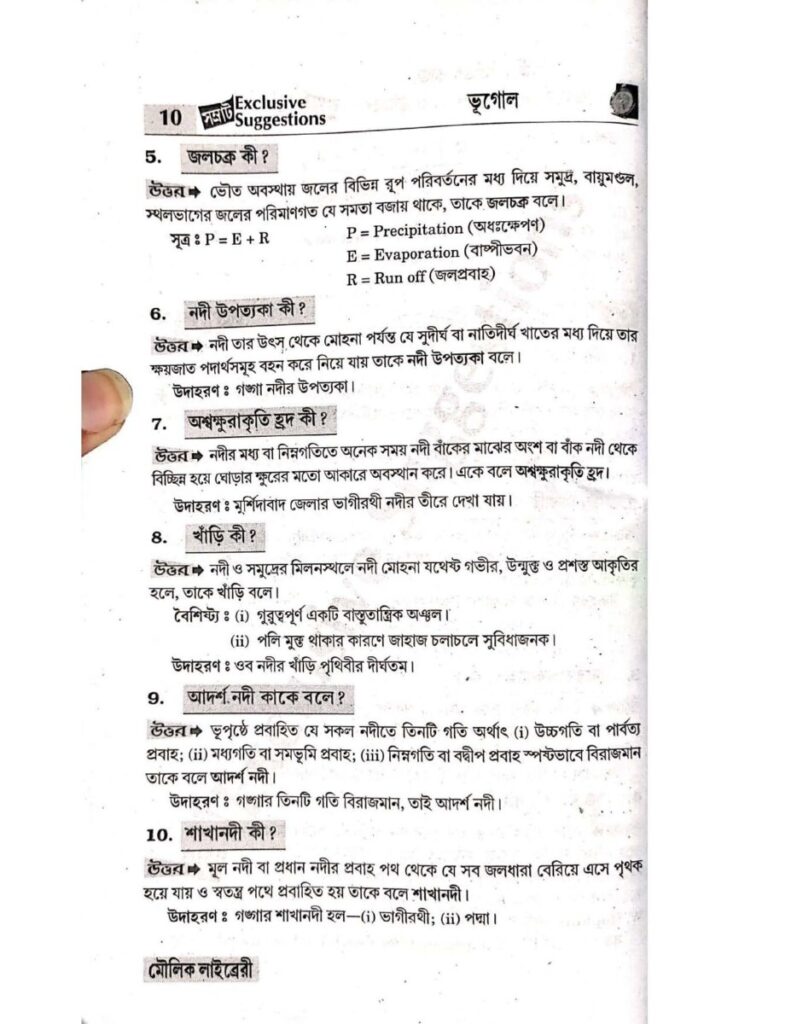 10 সম্রাট Exclusive Suggestions ভূগোল
5. জলচক্র কী ?
উত্তর ➡ ভৌত অবস্থায় জলের বিভিন্ন রূপ পরিবর্তনের মধ্য দিয়ে সমুদ্র, বায়ুমণ্ডল,
স্থলভাগের জলের পরিমাণগত যে সমতা বজায় থাকে, তাকে জলচক্র বলে।
সূত্র ঃ P = E + R P = Precipitation (অধঃক্ষেপণ)
E = Evaporation (বাষ্পীভবন)
R = Run off (জলপ্রবাহ)
6. নদী উপত্যকা কী ?
উত্তর ➡ নদী তার উৎস থেকে মোহনা পর্যন্ত যে সুদীর্ঘ বা নাতিদীর্ঘ খাতের মধ্য দিয়ে তার
ক্ষয়জাত পদার্থসমূহ বহন করে নিয়ে যায় তাকে নদী উপত্যকা বলে।
উদাহরণ ঃ গঙ্গা নদীর উপত্যকা।
7. অশ্বক্ষুরাকৃতি হ্রদ কী ?
উত্তর ➡ নদীর মধ্য বা নিম্নগতিতে অনেক সময় নদী বাঁকের মাঝের অংশ বা বাঁক নদী থেকে
বিচ্ছিন্ন হয়ে ঘোড়ার ক্ষুরের মতো আকারে অবস্থান করে। একে বলে অশ্বক্ষুরাকৃতি হ্রদ।
উদাহরণ ঃ মুর্শিদাবাদ জেলার ভাগীরথী নদীর তীরে দেখা যায়।
8. খাঁড়ি কী ?
উত্তর ➡ নদী ও সমুদ্রের মিলনস্থলে নদী মোহনা যথেষ্ট গভীর, উন্মুক্ত ও প্রশস্ত আকৃতির
হলে, তাকে খাঁড়ি বলে।
বৈশিষ্ট্য ঃ (i) গুরুত্বপূর্ণ একটি বাস্তুতান্ত্রিক অঞ্চল।
(ii) পলি মুক্ত থাকার কারণে জাহাজ চলাচলে সুবিধাজনক।
উদাহরণ ঃ ওব নদীর খাঁড়ি পৃথিবীর দীর্ঘতম।
9. আদর্শ নদী কাকে বলে ?
উত্তর ➡ ভূপৃষ্ঠে প্রবাহিত যে সকল নদীতে তিনটি গতি অর্থাৎ (i) উচ্চগতি বা পার্বত্য
প্রবাহ; (ii) মধ্যগতি বা সমভূমি প্রবাহ; (iii) নিম্নগতি বা বদ্বীপ প্রবাহ স্পষ্টভাবে বিরাজমান
তাকে বলে আদর্শ নদী।
উদাহরণ ঃ গঙ্গার তিনটি গতি বিরাজমান, তাই আদর্শ নদী।
10. শাখানদী কী ?
উত্তর ➡ মূল নদী বা প্রধান নদীর প্রবাহ পথ থেকে যে সব জলধারা বেরিয়ে এসে পৃথক
হয়ে যায় ও স্বতন্ত্র পথে প্রবাহিত হয় তাকে বলে শাখানদী।
উদাহরণ ঃ গঙ্গার শাখানদী হল—(i) ভাগীরথী; (ii) পদ্মা।
মৌলিক লাইব্রেরী